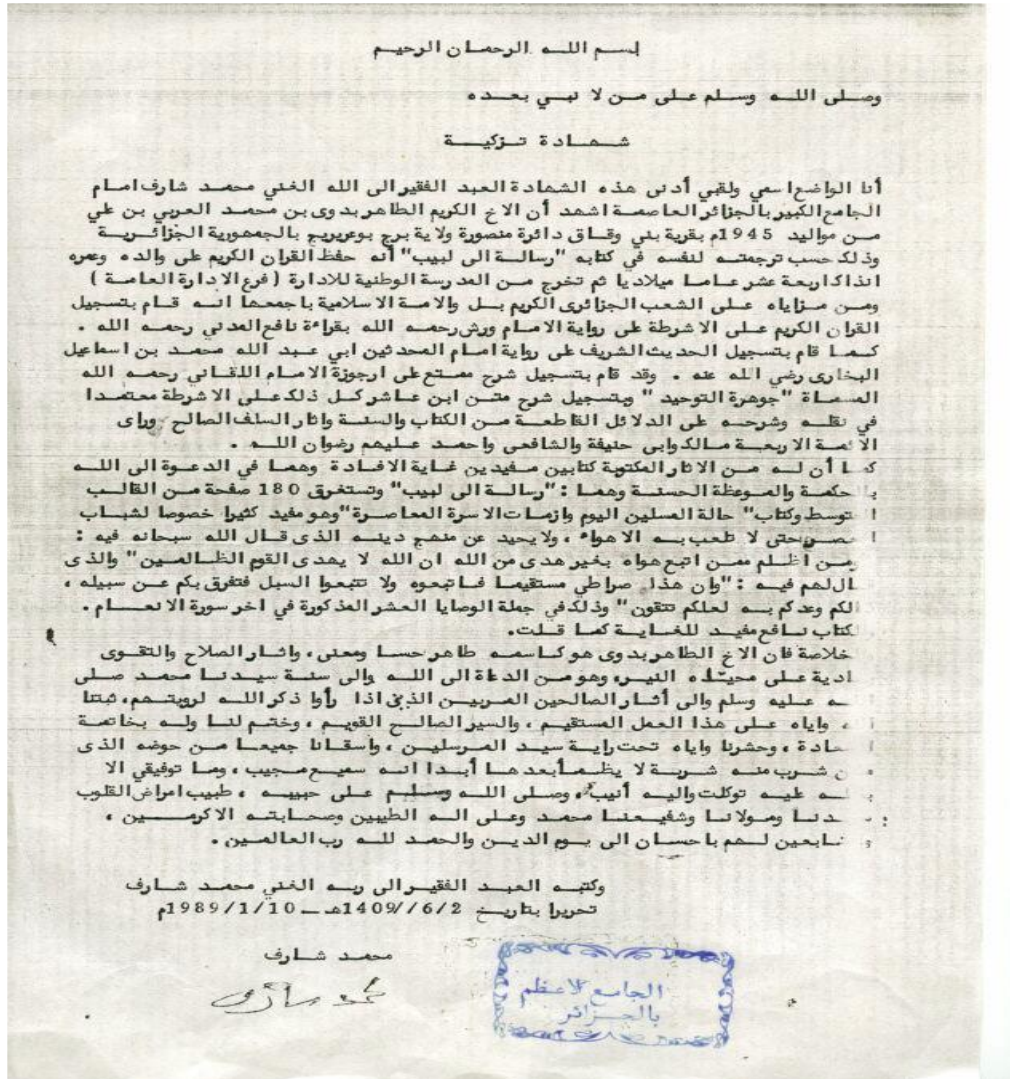 بسم اللـه الرحمـان الرحيـم
وصـلى اللـه وسـلم علـى مـن لا نبـي بعـده
شـهـادة تـزكيـة
أنا الواضع اسمي ولقبي أدنى هذه الشهادة العبد الفقير الى الله الغني محمـد شارف امام
الجامع الكبير بالجزائر العاصمـة اشهد أن الاخ الكريم الطاهر بدوى بن محمـد العربي بن علي
مـن مواليد 1945م بقرية بني وقـاق دائرة منصورة ولاية برج بوعريريج بالجمهورية الجزائـريـة
وذلك حسب ترجمتـه لنفسه في كتابه "رسالـة الى لبيب" أنه حفظ القران الكريم على والده وعمره
انذاك اربعـة عشر عـاما ميلاديا ثم تخرج مـن المدرسة الوطنية للادارة ( فرع الادارة العامـة )
ومـن مـزاياه علـى الشعب الجزائرى الكريم بـل والامـة الاسلامية باجمعها انـه قـام بتسجيل
القران الكريم علـى الاشرطة على رواية الامـام ورش رحمـه الله بقراءة نافع المدني رحمـه الله .
كـمـا قام بتسجيل الحديث الشريف على رواية امام المحدثين ابي عبد الله محمـد بن اسماعيل
البخارى رضي الله عنه . وقد قام بتسجيل شرح ممتـع على ارجوزة الامـام اللقـاني رحمـه الله
المسمـاة "جوهرة التوحيد" وبتسجيل شرح متـن ابن عاشر كـل ذلك علـى الاشرطة معتمـدا
في نقلـه وشرحـه على الدلائل القاطعـة مـن الكتاب والسنـة واثار السلف الصالح وراى
الائمـة الاربعـة مـالك وابي حنيفة والشافعى واحمـد عليهم رضوان اللـه .
كمـا أن لـه مـن الاثار المكتوبة كتابين مفيدين غـاية الافـادة وهمـا في الدعـوة الى اللـه
بالحكمـة والمـوعظة الحسنـة وهمـا : "رسالـة الى لبيب" وتستغرق 180 صفحة مـن القالـب
المتوسط وكتاب" حالة المسلين اليوم وازمـات الاسرة المعاصـرة "وهو مفيد كثيرا خصوصا لشبـاب
العصـر حتى لا تلعب بـه الاهواء ، ولا يحيد عن منهج دينـه الذى قـال الله سبحانه فيه :
ومـن أظلـم ممـن اتبع هواه بخير هدى مـن الله ان الله لا يهدى القوم الظـالمـين" والذى
قال لهم فيـه : "وان هذا صراطي مستقيمـا فـاتبعوه ولا تتبعوا السبل فتفرق بكم عـن سبيله ،
ذالكم وعدكم بـه لعلكم تتقون" وذلك في جملة الوصايا العشر المذكورة في اخر سورة الانعـام .
والكتاب نـافع مفيـد للغـايـة كمـا قلـت.
الخلاصة فان الاخ الطاهر بدوى هو كـاسمـه طاهر حسـا ومعنى ، واثـار الصلاح والتقـوى
بادية على محيـاه النيـر، وهو مـن الدعاة الى اللـه والى سنـة سيدنـا محمـد صـلى
اللـه عليـه وسلم والى أثـار الصالحين المـربيـن الذين اذا رأوا ذكر اللـه لرويتهـم، ثبتنا
الله واياه علـى هذا العمل المستقيـم ، والسير الصالـح القويـم ، وختـم لنـا ولـه بخاتمـة
السعـادة ، وحشرنا واياه تحت رايـة سيـد المـرسليـن ، واسقـانا جميعـا مـن حوضه الذى
مـن شـرب منـه شربـة لا يظـمأ بعدهـا أبـدا انـه سميـع مـجيب ، ومـا توفيقي الا
باللـه عليـه توكلت واليـه أنيب ، وصلى اللـه وسـلم علـى حبيبـه ، طبيب امراض القلوب
سيـدنـا ومـولانـا وشفيـعنـا محمـد وعلـى الـه الطيبين وصحـابتـه الاكرمـيـن ،
والتـابعين لـهم باحسـان الى يـوم الديـن والحمـد للـه رب العالمـين .
وكتبـه العبـد الفقيـر الى ربـه الغني محمـد شـارف
تحريرا بتاريـخ 1409//6/2هـ ــ 1989/1/10م
محمـد شـارف
محمد شارف
الجامع الاعظم
بالجـزائر